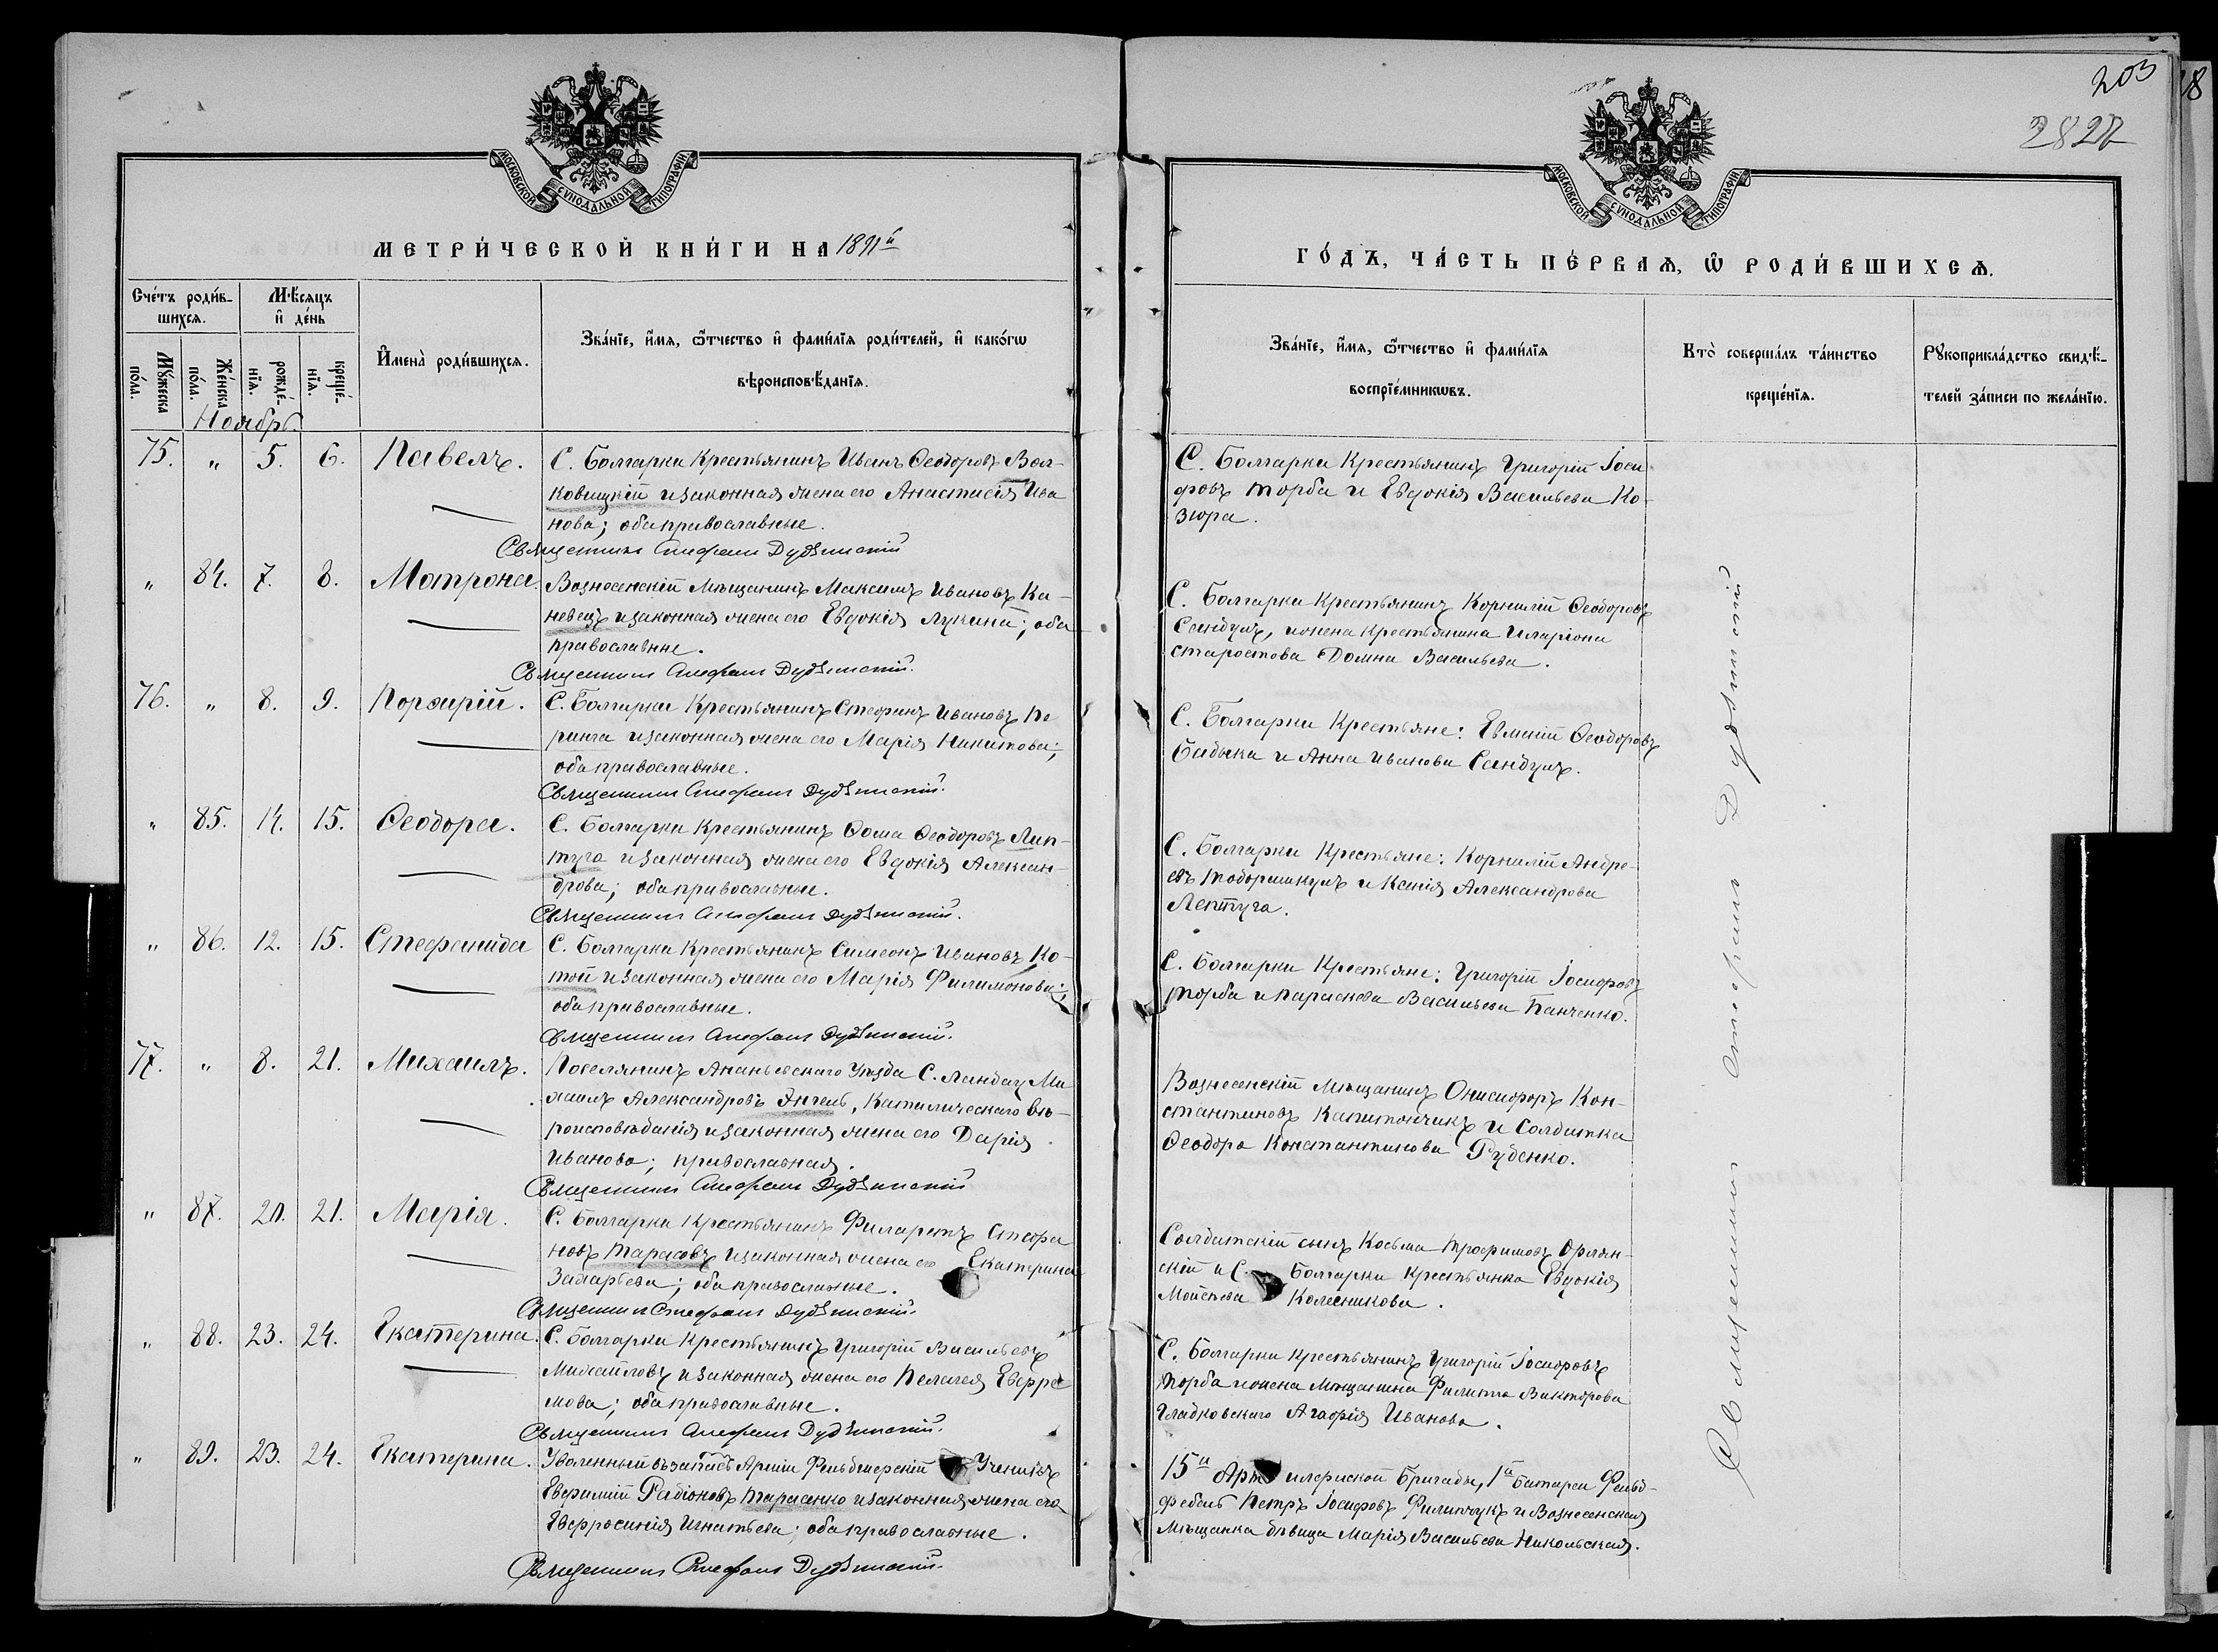 203
18
2827
МОСКОВСКОЙ СУНОДАЛЬНОЙ ТИПОГРАФІИ.
МОСКОВСКОЙ СУНОДАЛЬНОЙ ТИПОГРАФІИ.
МЕТРИ́ЧЕСКОЙ КНИ́ГИ НА 1891й
ГО́ДЪ, ЧА́СТЬ ПЕ́РВАѦ, Ѡ РОДИ́ВШИХСѦ.
Сче́тъ роди́в-
шихсѧ.
Мѣ́сяцъ
и҆ де́нь
Мꙋ́жеска
по́ла.
Же́нска
по́ла.
рожде́-
нїѧ.
креще́-
нїѧ.
И҆мена̀ роди́вшихсѧ.
Зва́нїе, и҆́мѧ, ѻ҆́тчество и҆ фами́лїѧ роди́телей, и҆ како́гѡ
вѣроисповѣ́данїѧ.
Зва́нїе, и҆́мѧ, ѻ҆́тчество и҆ фами́лїѧ
воспрїе́мникѡвъ.
Кто̀ соверша́лъ та́инство
креще́нїѧ.
Рꙋкоприкла́дство свидѣ́-
телей за́писи по жела́нїю.
Ноябрь.
75. " 5. 6. Павелъ.
С. Болгарки Крестьянинъ Иванъ Ѳеодоровъ Вол-
ковицкій и законная жена его Анастасія Ива
нова; оба православные.
Священникъ Стефанъ Дубѣнскій
С. Болгарки Крестьянинъ Григорій Іоси
фовъ Торба и Евдокія Васильева Ко-
зюра.
" 84. 7. 8. Матрона.
Вознесенскій Мѣщанинъ Максимъ Ивановъ Ка-
невецъ и законная жена его Евдокія Лукина; оба
православные.
Священникъ Стефанъ Дубѣнскій.
С. Болгарки Крестьянинъ Корнилій Ѳеодоровъ
Сандулъ, и жена крестьянина Иларіона
Старостова Домна Васильева.
76. " 8. 9. Порфирій.
С. Болгарки Крестьянинъ Стефанъ Ивановъ Пе
ринга и законная жена его Марія Никитова;
оба православные.
Священникъ Стефанъ Дубѣнскій.
С. Болгарки Крестьяне: Ѳеодоровъ
Бабыка и Анна Иванова Сандулъ.
" 85. 14. 15. Ѳеодора.
С. Болгарки Крестьянинъ Ѳома Ѳеодоровъ Лип-
туга и законная жена его Евдокія Алексан-
дрова; оба православные.
Священникъ Стефанъ Дубѣнскій.
С. Болгарки Крестьяне: Корнилій Андре-
евъ и Ксенія Александрова
Лептуга.
" 86. 12. 15. Стефанида
С. Болгарки Крестьянинъ Симеонъ Ивановъ Ко-
той и законная жена его Марія Филимонова;
оба православные.
Священникъ Стефанъ Дубѣнскій.
С. Болгарки Крестьяне: Григорій Іосифовъ
Торба и Параскева Васильева Панченко.
77. " 8. 21. Михаилъ.
Поселянинъ Ананьевскаго Уѣзда С. Ландау Ми
хаилъ Александровъ Энгель, Католическаго вѣ-
роисповѣданія и законная жена его Дарія
Иванова; православная.
Священникъ Стефанъ Дубѣнскій
Вознесенскій Мѣщанинъ Онисифоръ Кон-
стантиновъ Капитончикъ и Солдатка
Ѳеодора Константинова Руденко.
" 87. 20. 21. Марія.
С. Болгарки Крестьянинъ Филаретъ Стефа
новъ Тарасовъ и законная жена его Екатерина
Захарьева; оба православные.
Священникъ Стефанъ Дубѣнскій.
Солдатскій сынъ Косьма Трофимовъ Орлян-
скій и С. Болгарки Крестьянка Евдокія
Моисѣева Колесникова.
" 88. 23. 24. Екатерина.
С. Болгарки Крестьянинъ Григорій Васильевъ
Михайловъ и законная жена его Пелагея Ефре
мова; оба православные.
Священникъ Стефанъ Дубѣнскій.
С. Болгарки Крестьянинъ Григорій Іосифовъ
Торба и жена Мѣщанина Филиппа Викторова
Гладковскаго Агафія Иванова.
" 89. 23. 24. Екатерина.
Уволенный въ запасъ Арміи Фельдшерскій Ученикъ
Евфимій Радіоновъ Тарасенко и законная жена его
Евфросинія Игнатьева; оба православные.
Священникъ Стефанъ Дубѣнскій.
15й Артилерійской Бригады, 1й батареи Фельд-
фебель Петръ Іосифовъ Филипчукъ и Вознесенская
Мѣщанка дѣвица Марія Васильева Никольская.
Священникъ Стефанъ Дубѣнскій